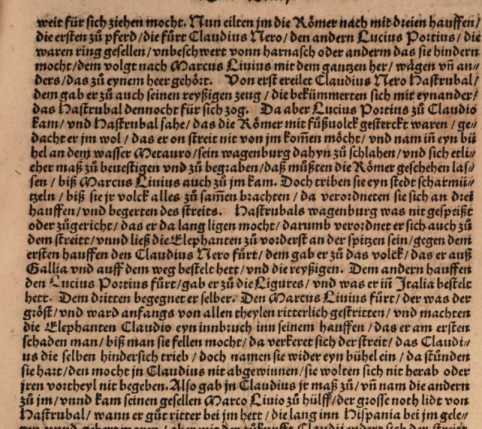 weit für sich ziehen mocht. Nun eilten jm die Römer nach mit dreien hauffen/
die ersten zů pferd/die fůrt Claudius Nero/den andern Lucius Portius/die
waren ring gesellen/vnbeschwert vonn harnasch oder anderm das sie hindern
mocht/dem volgt nach Marcus Liuius mit dem gantzen her/wägen vñ an-
ders/das zů eynem heer gehört. Von erst ereilet Claudius Nero Hastrubal/
dem gab er zů auch seinen reyßigen zeug/die bekümmerten sich mit eynander/
das Hastrubal dennocht für sich zog. Da aber Lucius Portius zů Claudio
kam/vnd Hastrubal sahe/das die Römer mit fůßuolck gesterckt waren/ge-
dacht er jm wol/das er on streit nit von jm kom̃en möcht/vnd nam iñ eyn bü
hel an dem wasser Metauro/sein wagenburg dahyn zů schlahen/vnd sich etli-
cher maß zů beuestigen vnd zů begraben/daß můßten die Römer geschehen las-
sen/biß Marcus Liuius auch zů jm kam. Doch triben sie eyn stedt scharmü-
tzeln/biß sie jr volck alles zů sam̃en brachten/da verordneten sie sich an drei
hauffen/vnd begerten des streits. Hastrubals wagenburg was nit gespeißt
oder zůgericht/das er da lang ligen mocht/darumb verordnet er sich auch zů
dem streitt/vnnd ließ die Elephanten zů vorderst an der spitzen sein/gegen dem
ersten hauffen den Claudius Nero fůrt/dem gab er zů das volck/das er auß
Gallia vnd auff dem weg bestelt hett/vnd die reyßigen. Dem andern hauffen
den Lucius Portius fůrt/gab er zů die Ligures/vnd was er iñ Italia bestelt
hett. Dem dritten begegnet er selber. Den Marcus Liuius fůrt/der was der
gröst/vnd ward anfangs von allen theylen ritterlich gestritten/vnd machten
die Elephanten Claudio eyn innbruch inn seinem hauffen/das er am ersten
schaden nam/biß man sie fellen mocht/da verkeret sich der streit/das Claudi-
us die selben hindersich trieb/doch namen sie wider eyn bühel ein/da stůnden
sie hart/den mocht jn Claudius nit abgewinnen/sie wolten sich nit herab oder
jren vortheyl nit begeben. Also gab jn Claudius jr maß zů/vñ nam die andern
zů jm/vnnd kam seinen gesellen Marco Liuio zů hülff/der grosse noth lidt von
Hastrubal/wann er gůt ritter bei jm hett/die lang inn Hispania bei jm gele-